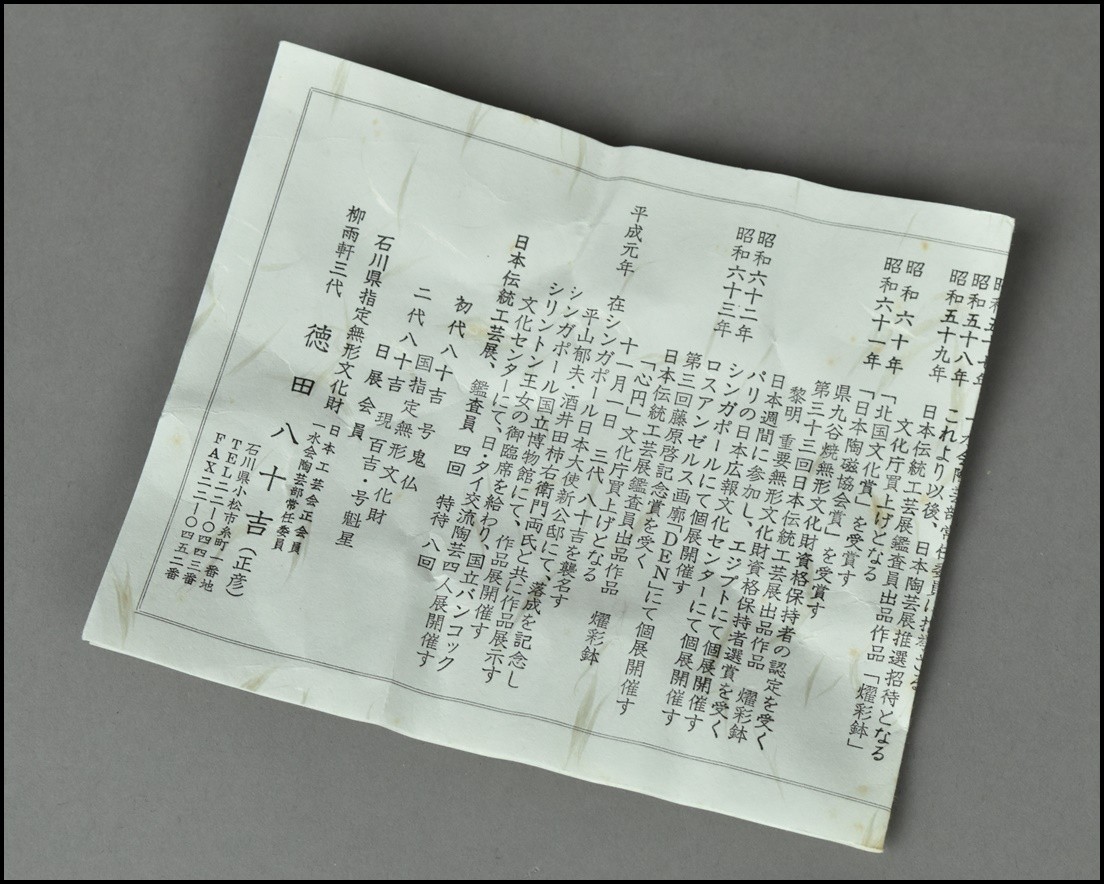 昭和五十八年 これより以後、日本陶芸展推選招待となる
昭和五十九年 日本伝統工芸展鑑査員出品作品「燿彩鉢」
文化庁買上げとなる
昭和六十年 「北国文化賞」を受賞す
昭和六十一年 「日本陶磁協会賞」を受賞す
県九谷焼無形文化財資格保持者の認定を受く
第三十三回日本伝統工芸展出品作品 燿彩鉢
黎明 重要無形文化財資格保持者選賞を受く
昭和六十二年 日本週間に参加し、エジプトにて個展開催す
パリの日本広報文化センターにて個展開催す
昭和六十三年 シンガポールにて個展開催す
ロスアンゼルス画廊「DEN」にて個展開催す
第三回藤原啓記念賞を受く
日本伝統工芸展鑑査員出品作品 燿彩鉢
「心円」文化庁買上げとなる
十一月一日 三代 八十吉を襲名す
平成元年 在シンガポール日本大使新公邸にて、落成を記念し
平山郁夫・酒井田柿右衛門両氏と共に作品展示す
シンガポール国立博物館にて、作品展開催す
シリントン王女の御臨席を給わり、国立バンコック
文化センターにて、日・タイ交流陶芸四人展開催す
日本伝統工芸展、鑑査員 四回 特待 八回
初代 八十吉 号 鬼仏
国指定無形文化財
二代 八十吉 現 百吉・号 魁星
日展会員
石川県指定無形文化財
日本工芸会正会員
一水会陶芸部常任委員
柳雨軒三代 徳田八十吉(正彦)
石川県小松市糸町一番地
TEL二二-〇四四三番
FAX二二-〇四五二番